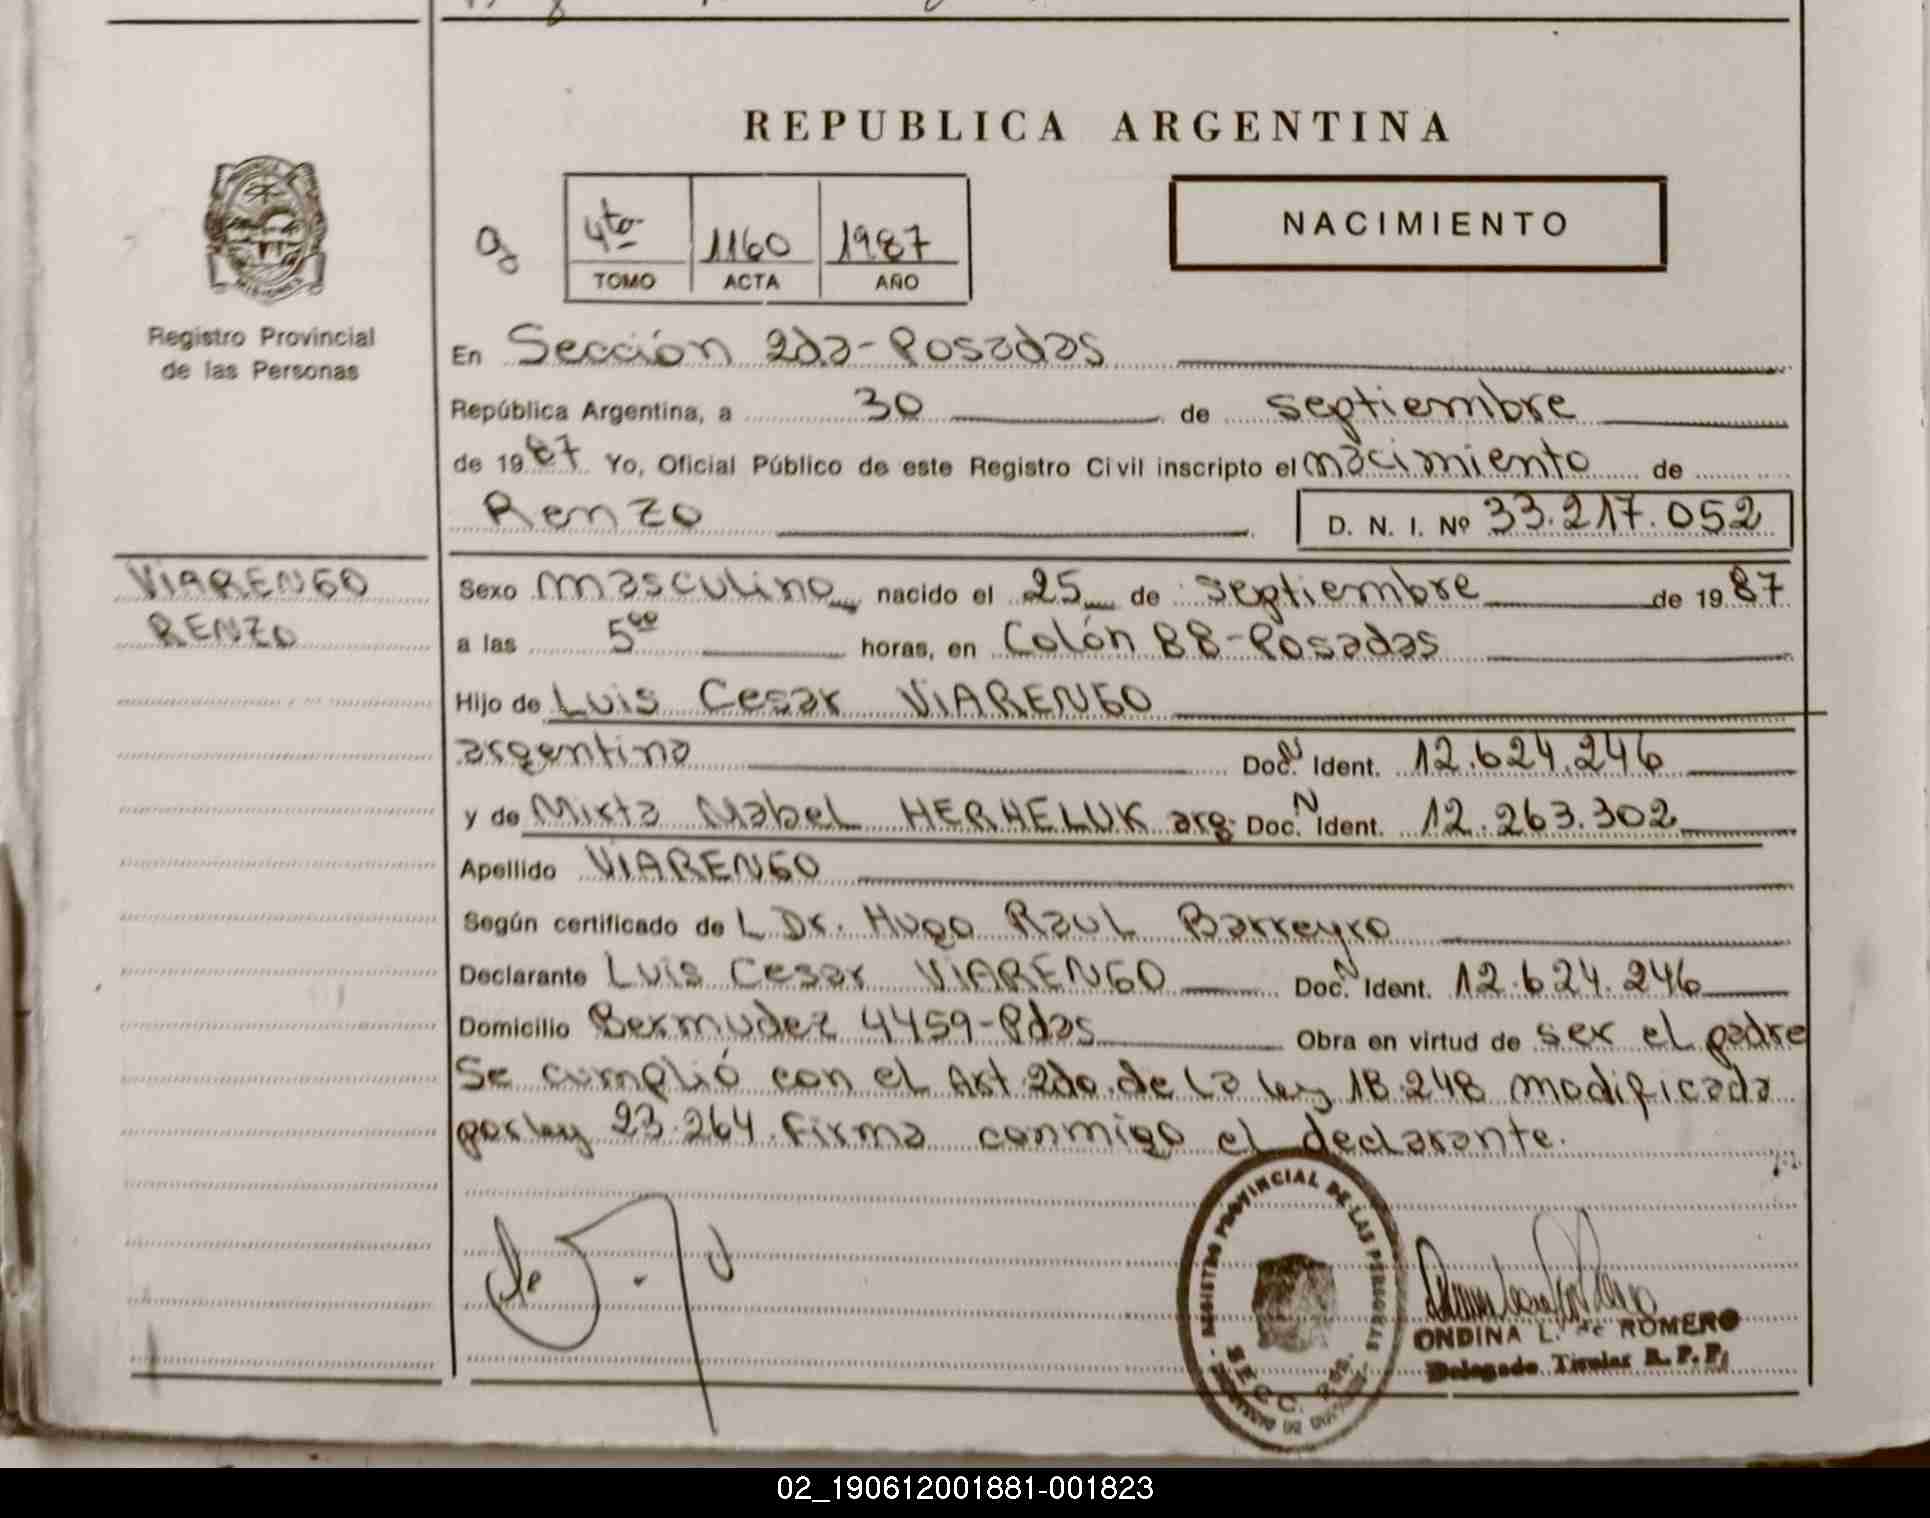 REPUBLICA ARGENTINA
NACIMIENTO
4to 1160 1987
TOMO ACTA AÑO
MISIONES
Registro Provincial
de las Personas
En Sección 2da-Posadas
República Argentina, a 30 de septiembre
de 1987 Yo, Oficial Público de este Registro Civil inscripto el nacimiento de
Renzo D. N. I. Nº 33.217.052
VIARENGO
RENZO
Sexo masculino nacido el 25 de septiembre de 1987
a las 5⁰⁰ horas, en Colón 88-Posadas
Hijo de Luis Cesar VIARENGO
argentina Doc. N Ident. 12.624.246
y de Mirta Mabel HERHELUK arg. Doc. N Ident. 12.263.302
Apellido VIARENGO
Según certificado de L Dr. Hugo Raul Barreyro
Declarante Luis Cesar VIARENGO Doc. N Ident. 12.624.246
Domicilio Bermudez 4459-Pdas Obra en virtud de ser el padre
Se cumplió con el Art 2do. de la ley 18.248 modificada
por ley 23.264. Firma conmigo el declarante.
REGISTRO PROVINCIAL DE LAS PERSONAS
SECC. 2da.
ONDINA L. de ROMERO
Delegado Titular R. P. P.
02_190612001881-001823